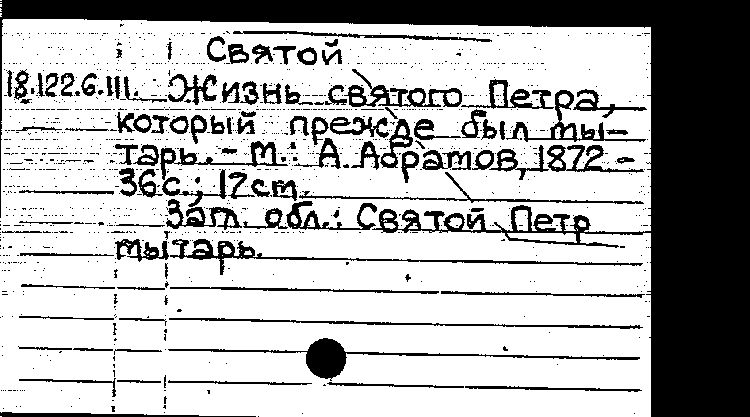 Святой
18.122.6.III. Жизнь святого Петра,
который прежде был мы-
тарь. - М.: А. Абрамов, 1872 -
36с.; 17см.
Загл. обл.: Святой Петр
мытарь.